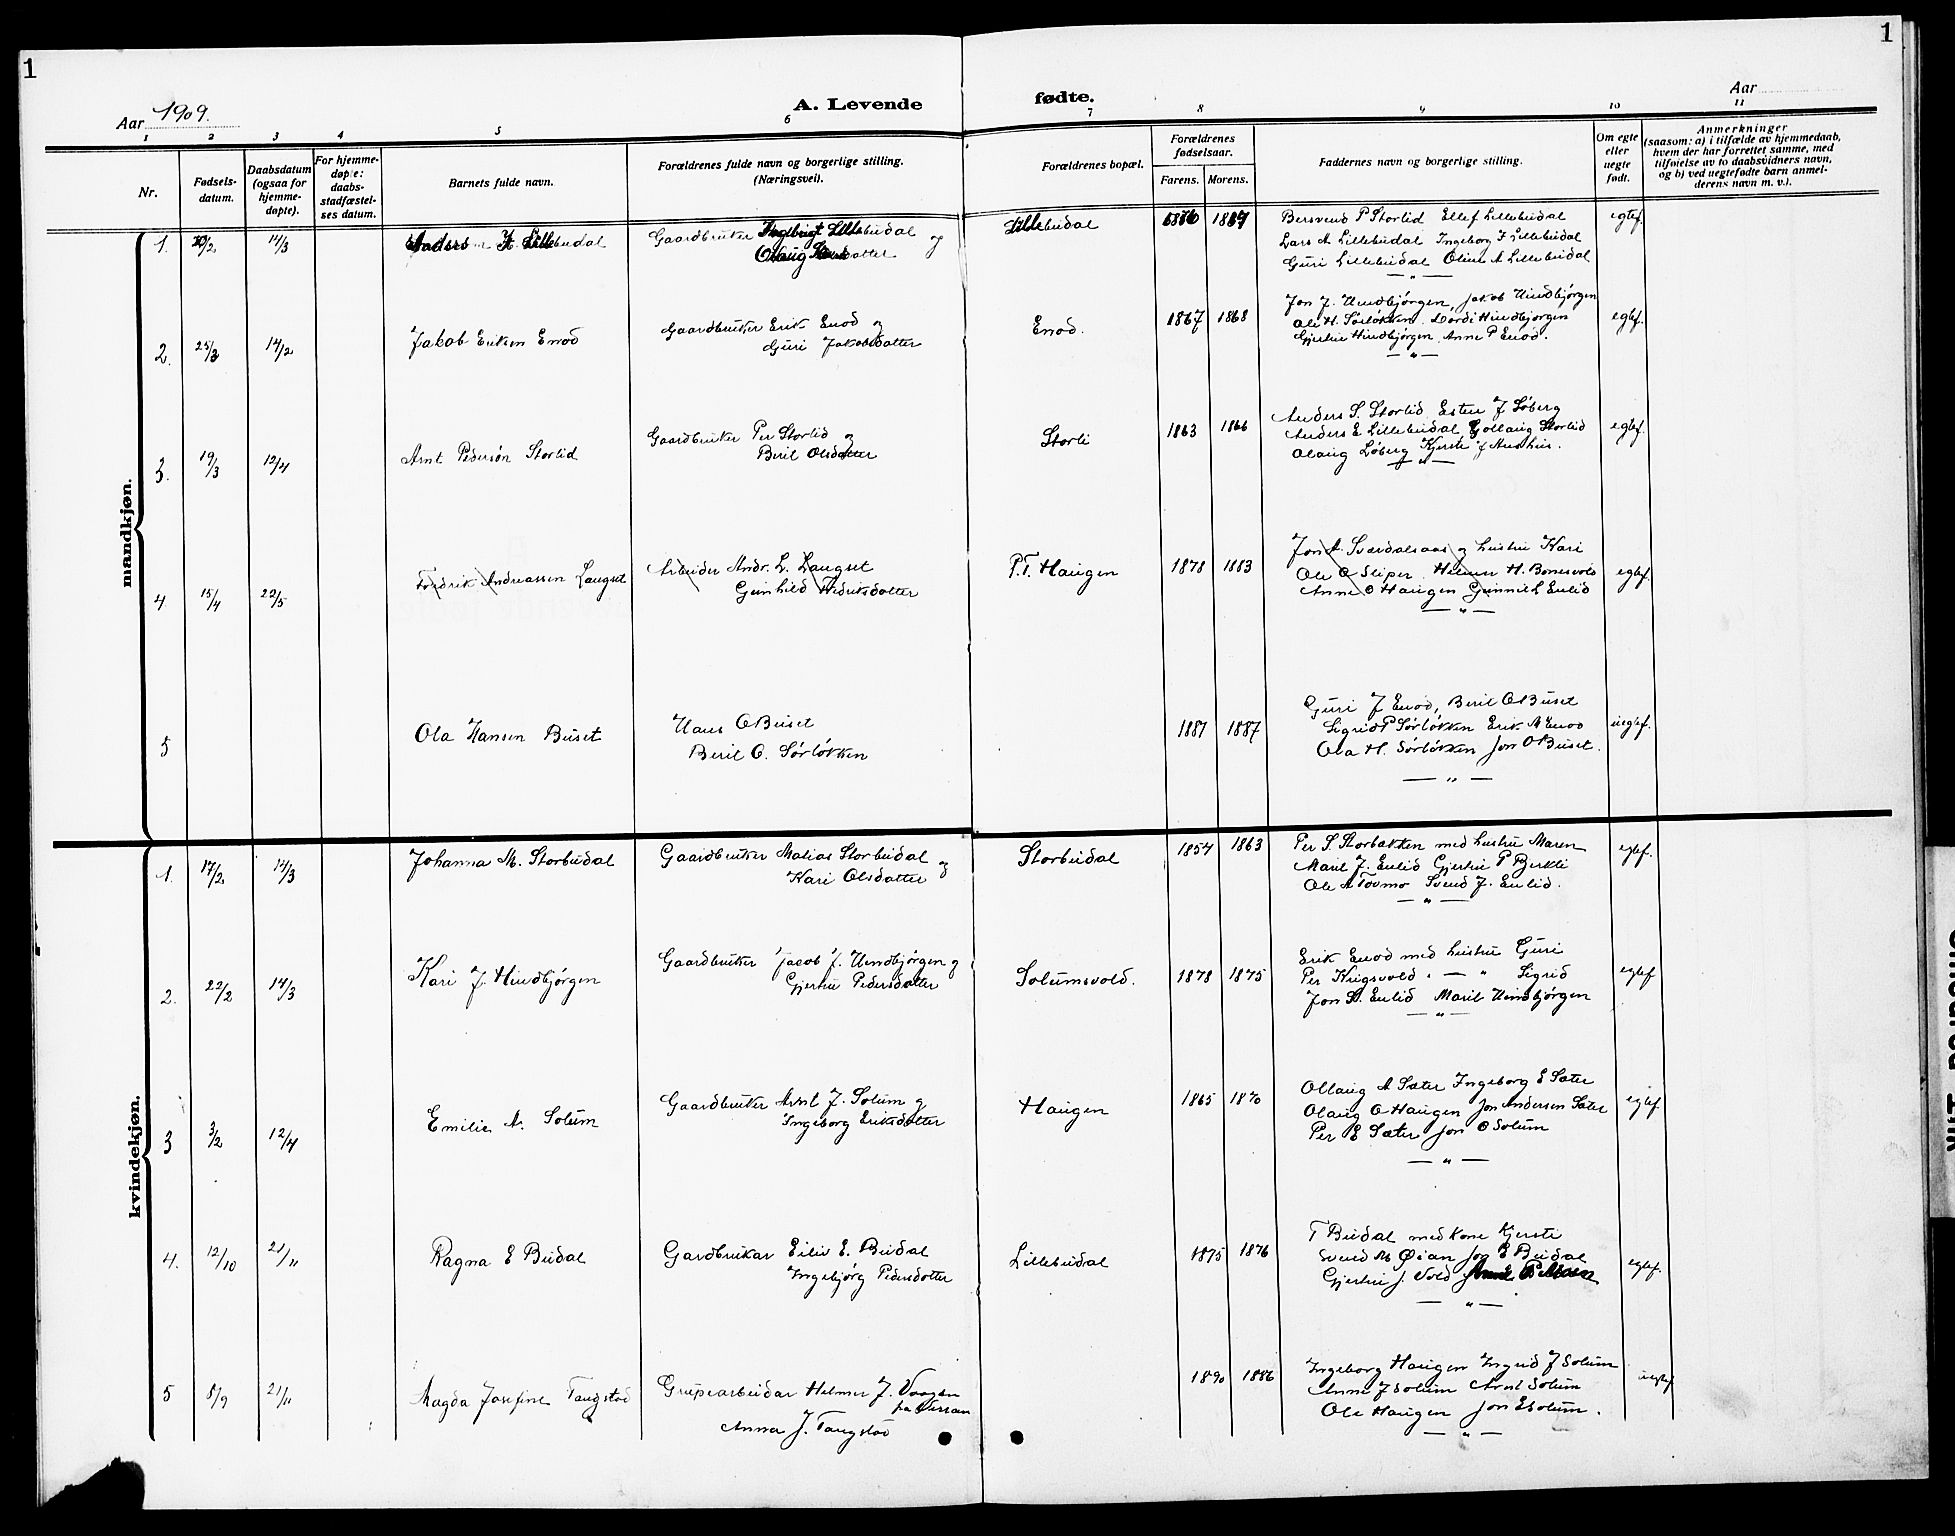 1
1
Aar 1909.
A. Levende fødte.
Aar
1 2 3 4 5 6 7 8 9 10 11
Nr.
Fødsels-
datum.
Daabsdatum
(ogsaa for
hjemme-
døpte).
For hjemme-
døpte:
daabs-
stadfæstel-
ses datum.
Barnets fulde navn.
Forældrenes fulde navn og borgerlige stilling.
(Næringsvei).
Forældrenes bopæl.
Forældrenes
fødselsaar.
Farens. Morens.
Faddernes navn og borgerlige stilling.
Om egte
eller
uegte
født.
Anmerkninger
(saasom: a) i tilfælde av hjemmedaab,
hvem der har forrettet samme, med
tilføielse av to daabsvidners navn,
og b) ved uegtefødte barn anmel-
derens navn m. v.).
mandkjøn.
1. 14/3 Lillebudal
Gaardbruker Ingebrigt Lillebudal og
Olaug
Lillebudal
Bersvend P Storlid Ellef Lillebudal
Lars A Lillebudal Ingeborg F Lillebudal
Guri Lillebudal Oline A Lillebudal
— " —
egtef.
2. 25/3 14/2 Jakob Eriksen Enod
Gaardbruker Erik Enod og
Guri Jakobsdatter
Enod. 1867 1868
Jon J. Hindbjørgen, Jakob Hindbjørgen
Ole H. Sørløkken. Dordi Hindbjørgen
Gjertru Hindbjørgen Anne P Enod.
— " —
egtef.
3. 19/3 12/4 Arnt Pedersøn Storlid
Gaardbruker Per Storlid og
Beril Olsdatter
Storli 1863 1866
Anders S. Storlid Esten J Løberg
Anders E Lillebudal Gollaug Storlid
Olaug Løberg Kjersti J Aushus.
— " —
egtef.
4 15/4 22/5 Fredrik Andreassen Langset
Arbeider Andr. L. Langset
Gunhild Fredriksdatter
P.T. Haugen 1878 1883
Jon A. Sværdalsaas og hustru Kari
Ole O Sliper Helmer H. Bonesvold
Anne O Haugen Gunnil L Enlid
— " —
egtef.
5 Ola Hansen Buset
Hans O Buset
Beril O. Sørløkken
1881 1887
Guri J Enod, Beril O Buset
Sigrid P Sørløkken Erik A Enod
Ola H. Sørløkken Jon O Buset.
— " —
uegtef.
kvindekjøn.
1. 17/2 14/3 Johanna M. Storbudal
Gaardbruker Matias Storbudal og
Kari Olsdatter
Storbudal 1854 1863
Per S Storbakken med hustru Maren
Maril J. Enlid Gjertru P Berkli
Ole A Tovmo Svend J. Enlid.
— " —
egtef.
2. 22/2 14/3 Kari J. Hindbjørgen
Gaardbruker Jacob J. Hindbjørgen og
Gjertru Pedersdatter
Solumsvold. 1878 1875
Erik Enod med hustru Guri
Per Krigsvold " — " Sigrid
Jon S. Enlid Maril Hindbjørgen
— " —
egtef
3 3/2 12/4 Emilie A. Solum
Gaardbruker Arnt J. Solum og
Ingeborg Eriksdatter
Haugen 1865 1870
Ollaug A Sæter Ingeborg E Sæter
Olaug O Haugen Jon Andersen Sæter
Per E Sæter Jon O Solum
— " —
egtef
4. 12/10 21/11 Ragna E Budal
Gardbrukar Eiliv E. Budal
Ingebjørg Pedersdotter
Lillebudal 1875 1876
T Budal med kone Kjersti
Svend M Øian Jog E Budal
Gjertru J. Vold
— " —
egtef.
5 8/9 21/11 Magda Josefine Tangstad
Grupearbeidar Helmer J. Vaagan
fra Verran
Anna J. Tangstad
1890 1886
Ingeborg Haugen Ingrid J Solum
Anne J Solum Arnt Solum
Ole Haugen Jon E Solum.
— " —
uegtef